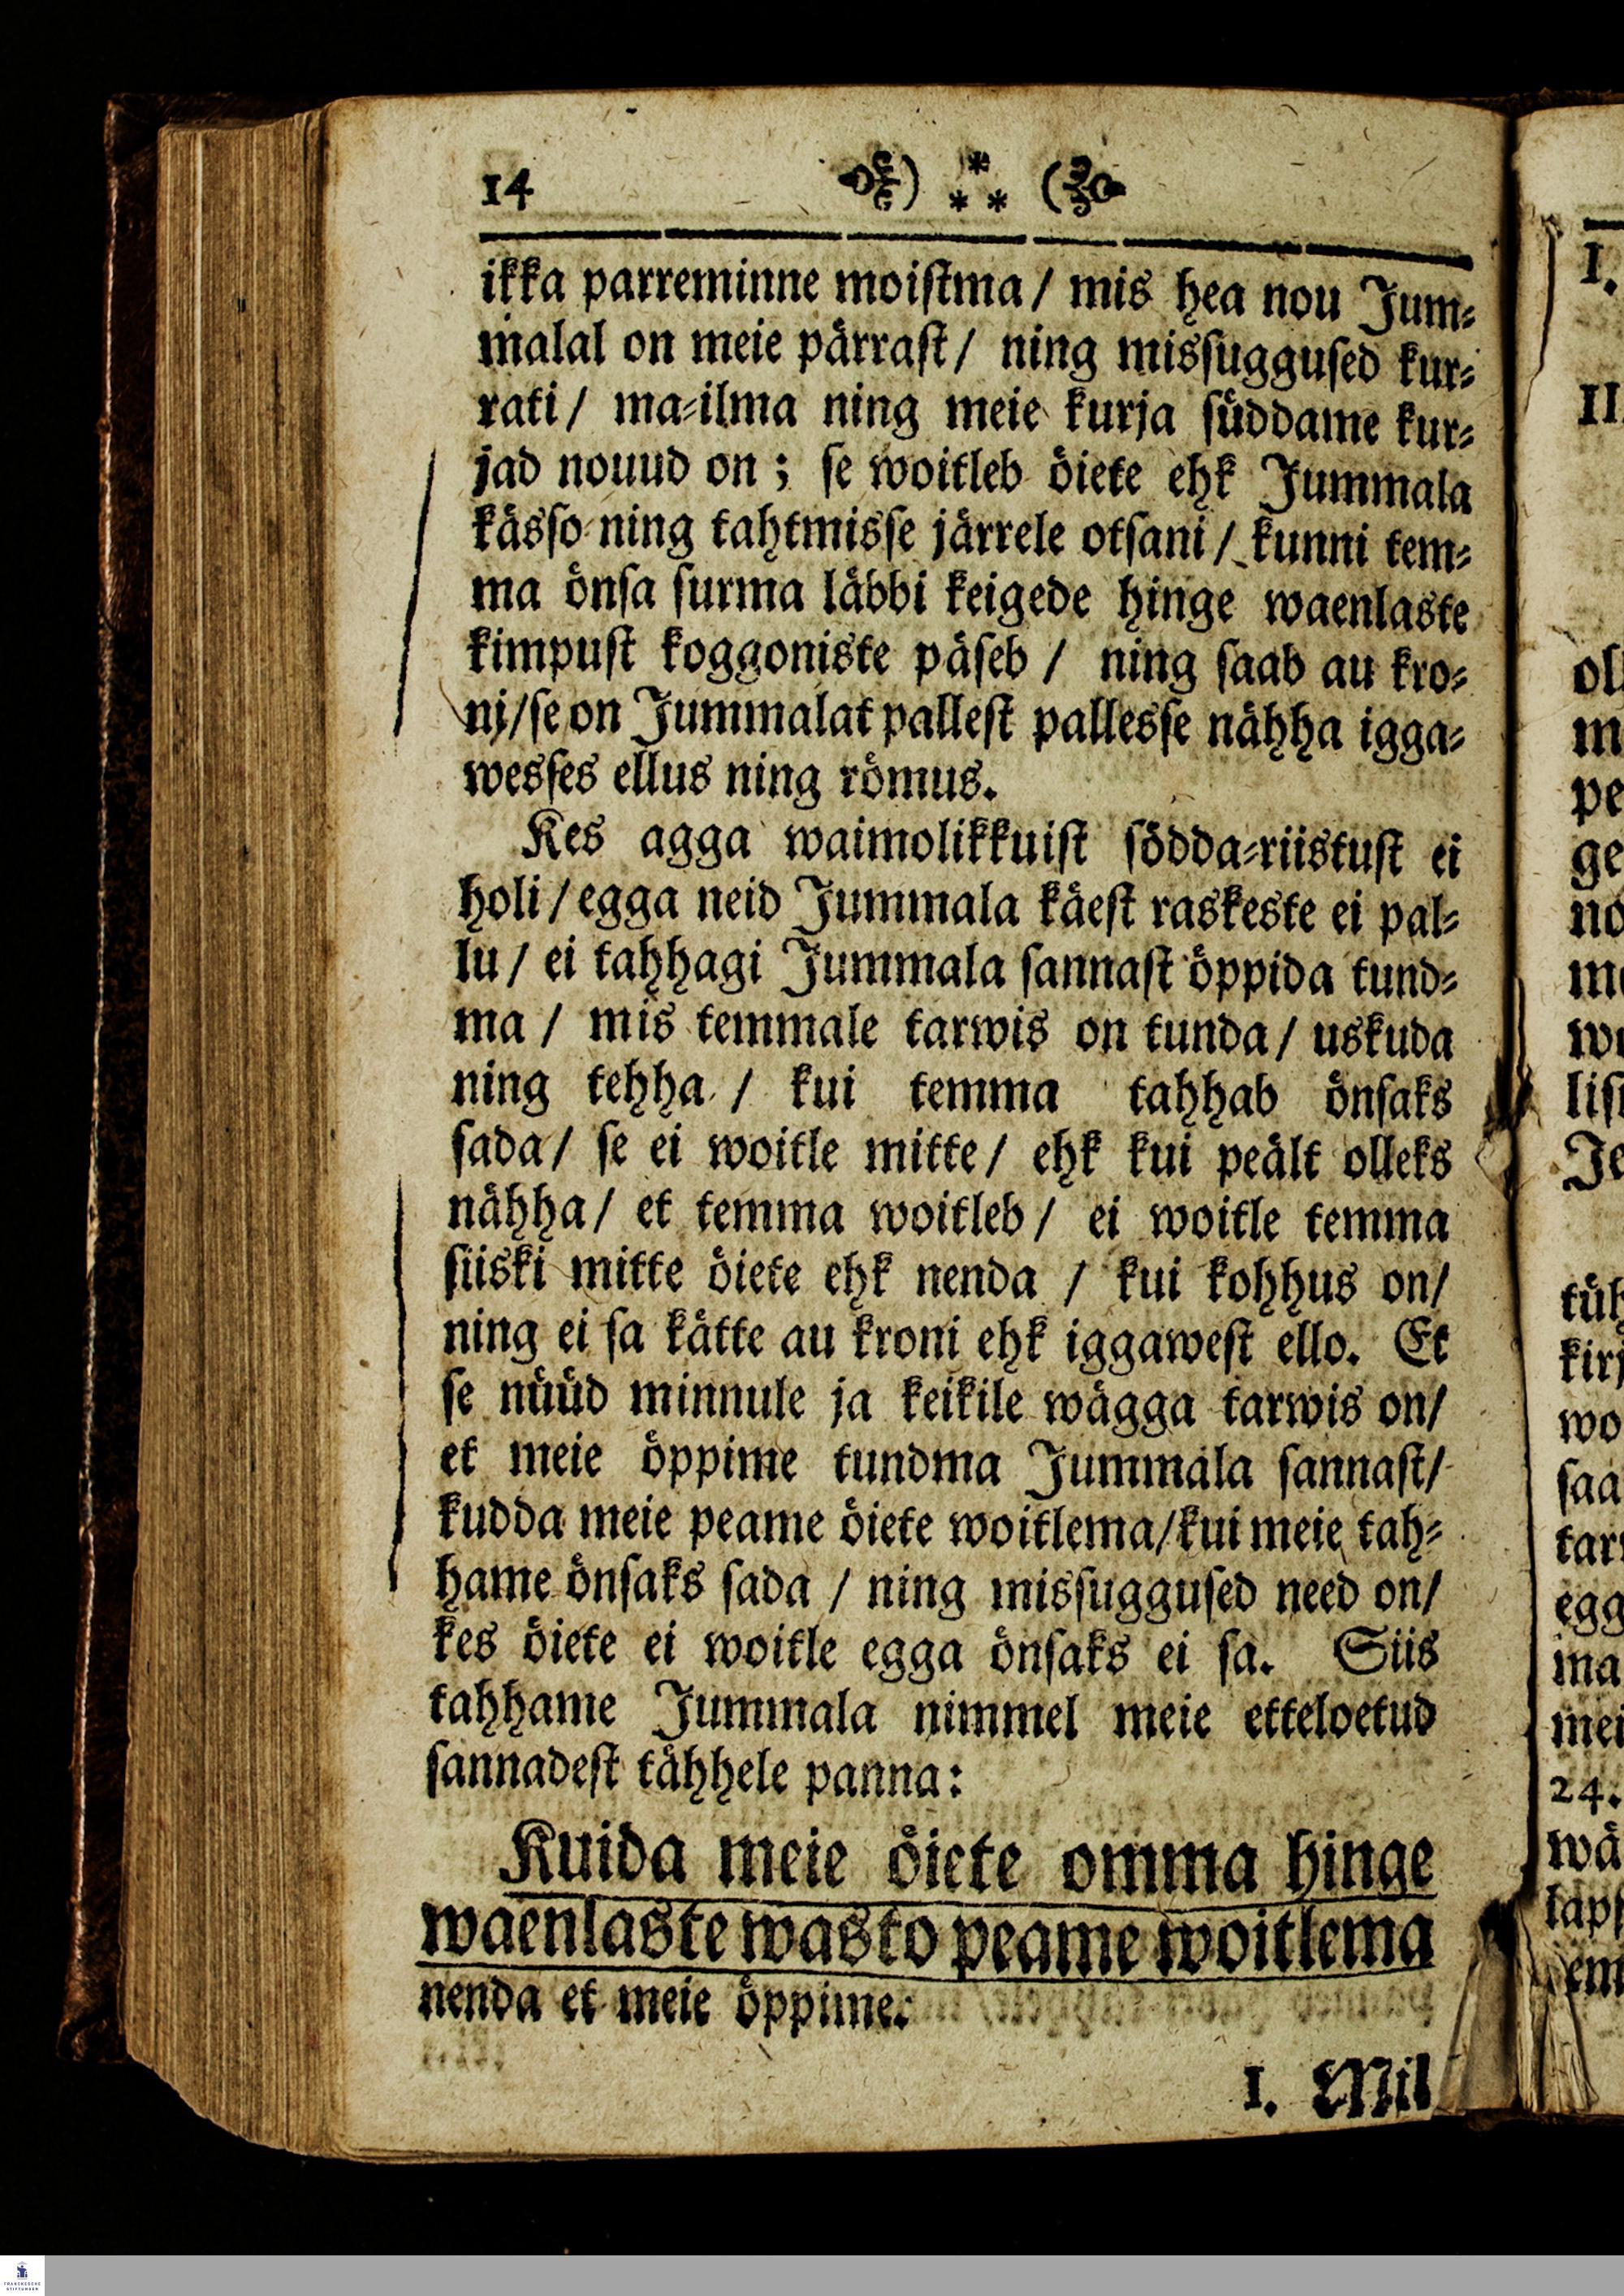 14 ) *** (
ikka parreminne moiſtma/ mis hea nou Jum⸗
malal on meie pärraſt/ ning misſugguſed kur⸗
rati/ ma⸗ilma ning meie kurja ſüddame kur⸗
jad nouud on; ſe woitleb öiete ehk Jummala
käsſo ning tahtmisſe järrele otſani/ kunni tem⸗
ma önſa ſurma läbbi keigede hinge waenlaste
kimpuſt koggoniste päſeb/ ning ſaab au kro⸗
ni/ſe on Jummalat palleſt pallesſe nähha igga⸗
wesſes ellus ning römus.
Kes agga waimolikkuiſt södda⸗riistuſt ei
holi/egga neid Jummala käeſt raskeste ei pal⸗
lu/ ei tahhagi Jummala ſannaſt öppida tund⸗
ma/ mis temmale tarwis on tunda/ uskuda
ning tehha/ kui temma tahhab önſaks
ſada/ ſe ei woitle mitte/ ehk kui peält olleks
nähha/ et temma woitleb/ ei woitle temma
ſiiski mitte öiete ehk nenda/ kui kohhus on/
ning ei ſa kätte au kroni ehk iggaweſt ello. Et
ſe nüüd minnule ja keikile wägga tarwis on/
et meie öppime tundma Jummala ſannaſt/
kudda meie peame öiete woitlema/kui meie tah⸗
hame önſaks ſada/ ning misſugguſed need on/
kes öiete ei woitle egga önſaks ei ſa. Siis
tahhame Jummala nimmel meie etteloetud
ſannadeſt tähhele panna:
Kuida meie öiete omma hinge
waenlaste wasto peame woitlema
nenda et meie öppime:
1. Mil